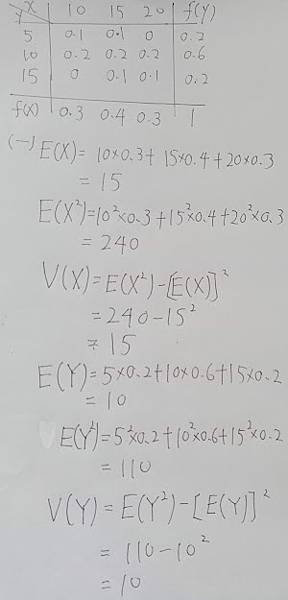 Y X 10 15 20 f(Y)
5 0.1 0.1 0 0.2
10 0.2 0.2 0.2 0.6
15 0 0.1 0.1 0.2
f(X) 0.3 0.4 0.3 1
(一) E(X)= 10×0.3+ 15×0.4+20×0.3
= 15
E(X²)=10²×0.3+15²×0.4+20²×0.3
= 240
V(X)=E(X²)-[E(X)]²
=240-15²
= 15
E(Y)=5×0.2+10×0.6+15×0.2
= 10
E(Y²)=5²×0.2+10²×0.6+15²×0.2
= 110
V(Y)=E(Y²)-[E(Y)]²
= 110-10²
= 10